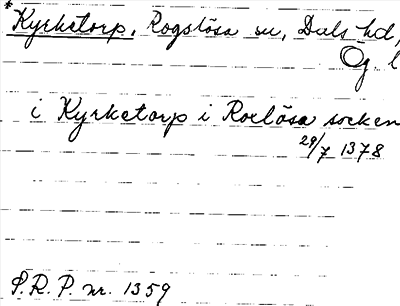 *Kyrketorp, Rogslösa sn, Dals hd,
Ög l
i Kyrketorp i Roxlösa socken
29/7 1378
P.R.P. nr. 1359